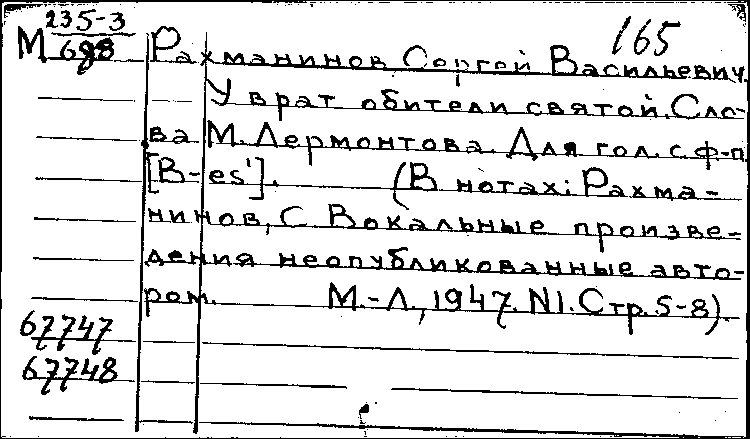 235-3
М 698
165
Рахманинов Сергей Васильевич.
У врат обители святой. Сло-
ва М. Лермонтова. Для гол. с ф-п.
[B-es']. (В нотах: Рахма-
нинов, С Вокальные произве-
дения неопубликованные авто-
ром. М.-Л., 1947. N1. Стр. 5-8).
67747
67748